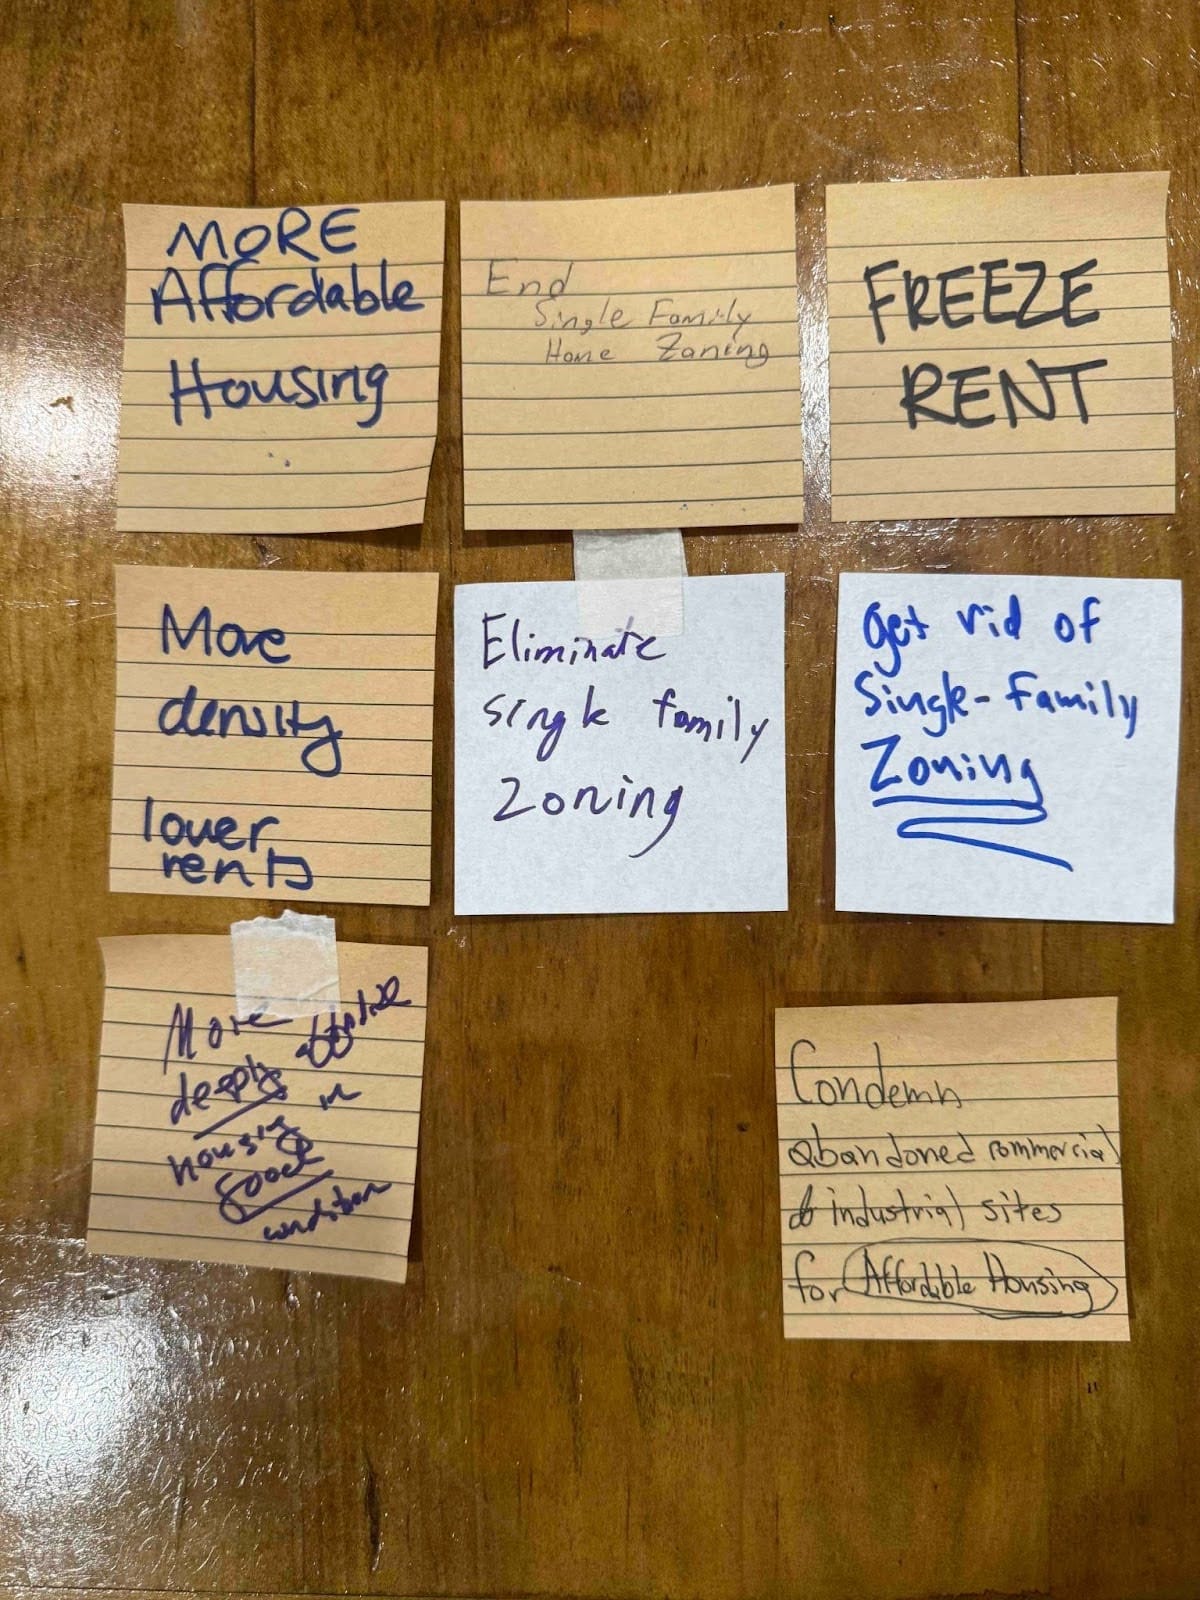 MORE
Affordable
Housing
End
Single Family
Home Zoning
FREEZE
RENT
More
density
lower
rents
Eliminate
single family
Zoning
Get rid of
Single-Family
Zoning
More
deeply affordable
housing in
good
condition
Condemn
abandoned commercial
& industrial sites
for Affordable Housing